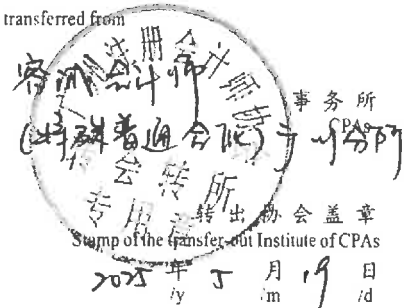 transferred from
册会计师协
容诚会计师
事务所
CPAs
(特殊普通合伙)广州分所
会转所
专用章
转出协会盖章
Stamp of the transfer-out Institute of CPAs
2025 年 5 月 19 日
/y /m /d